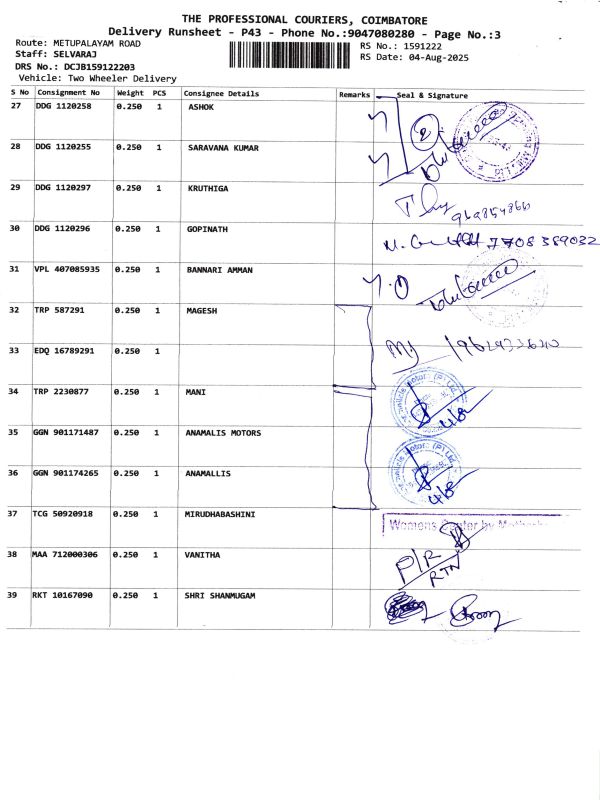 THE PROFESSIONAL COURIERS, COIMBATORE
Delivery Runsheet - P43 - Phone No.:9047080280 - Page No.:3
Route: METUPALAYAM ROAD
Staff: SELVARAJ
DRS No.: DCJB159122203
Vehicle: Two Wheeler Delivery
RS No.: 1591222
RS Date: 04-Aug-2025
S No Consignment No Weight PCS Consignee Details Remarks Seal & Signature
27 DDG 1120258 0.250 1 ASHOK
28 DDG 1120255 0.250 1 SARAVANA KUMAR
29 DDG 1120297 0.250 1 KRUTHIGA
30 DDG 1120296 0.250 1 GOPINATH 7708 389032
31 VPL 407085935 0.250 1 BANNARI AMMAN
32 TRP 587291 0.250 1 MAGESH
33 EDQ 16789291 0.250 1
34 TRP 2230877 0.250 1 MANI 4/8
35 GGN 901171487 0.250 1 ANAMALIS MOTORS
36 GGN 901174265 0.250 1 ANAMALLIS 4/8
37 TCG 50920918 0.250 1 MIRUDHABASHINI Womens Center by
38 MAA 712000306 0.250 1 VANITHA P/R RTN
39 RKT 10167090 0.250 1 SHRI SHANMUGAM